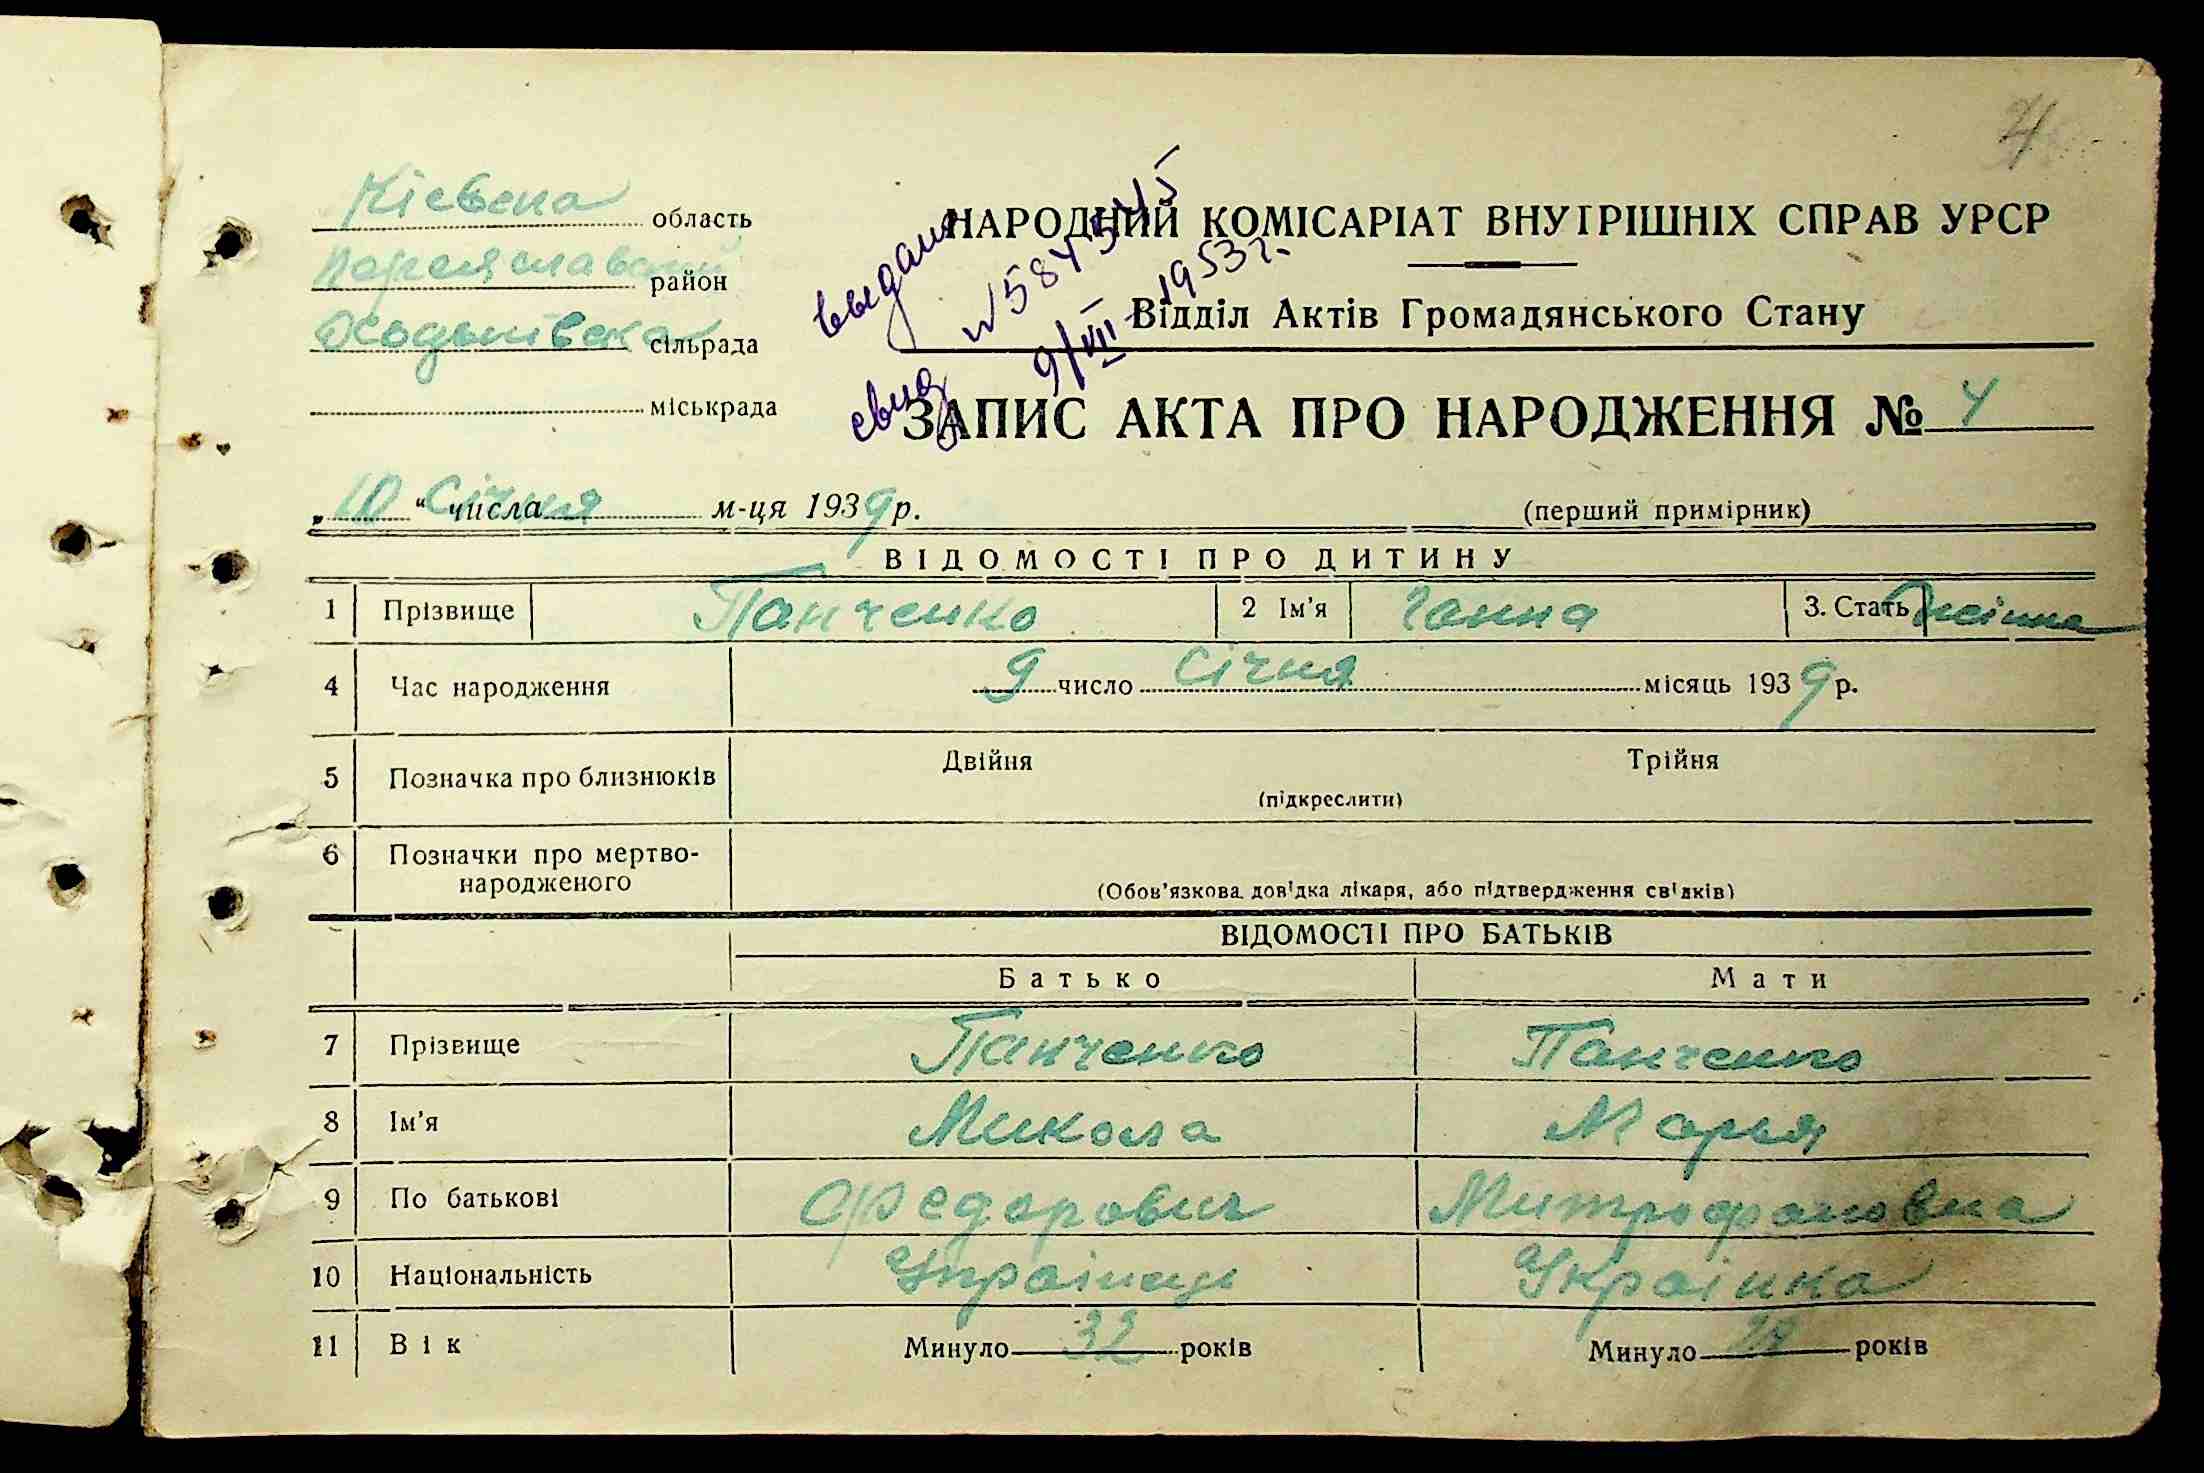 4
Кієвска область
Переяславский район
сільрада
міськрада
выдано
свид
9/VII 1953 г.
НАРОДНИЙ КОМІСАРІАТ ВНУТРІШНІХ СПРАВ УРСР
Відділ Актів Громадянського Стану
ЗАПИС АКТА ПРО НАРОДЖЕННЯ № 4
„10“ числа Січня м-ця 1939 р.
(перший примірник)
ВІДОМОСТІ ПРО ДИТИНУ
1 Прізвище Панченко 2 Ім'я Ганна 3. Стать жіноча
4 Час народження 9 число Січня місяць 1939 р.
5 Позначка про близнюків Двійня Трійня
(підкреслити)
6 Позначки про мертво-
народженого
(Обов'язкова довідка лікаря, або підтвердження свідків)
ВІДОМОСТІ ПРО БАТЬКІВ
Батько Мати
7 Прізвище Панченко Панченко
8 Ім'я Микола Марья
9 По батькові Федорович Митрофановна
10 Національність Украінець Украінка
11 Вік Минуло 32 років Минуло років